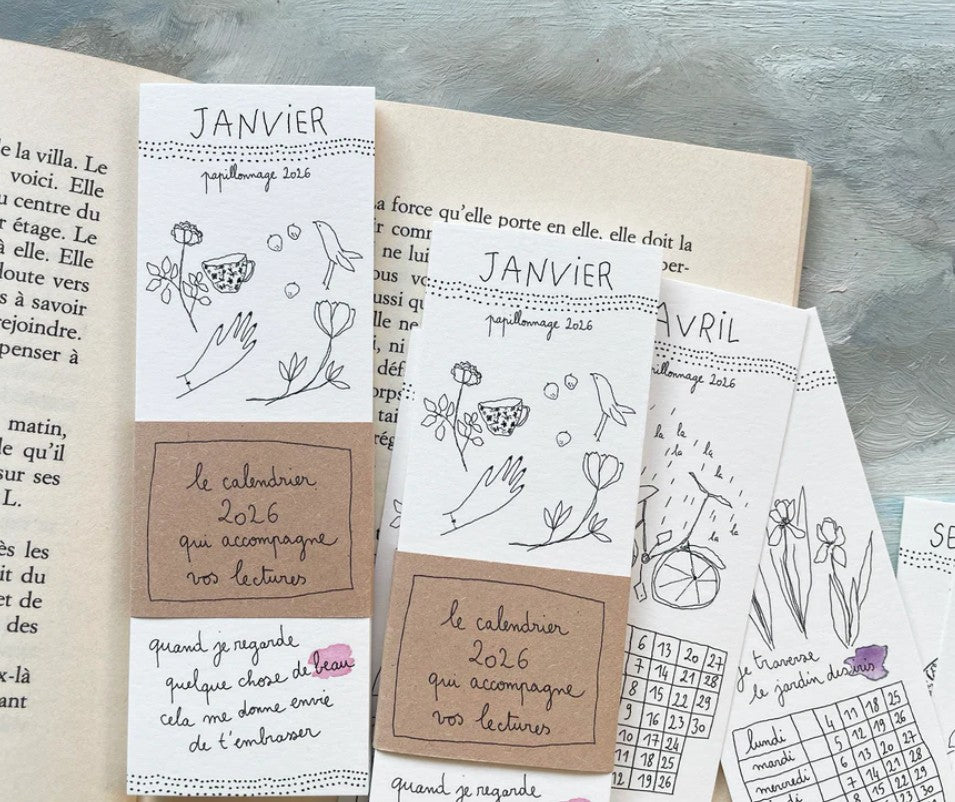 e la villa. Le
voici. Elle
u centre du
r étage. Le
à elle. Elle
doute vers
s à savoir
rejoindre.
penser à
matin,
le qu'il
sur ses
L.
ès les
it du
et de
des
x-là
ant
JANVIER
papillonnage 2026
le calendrier
2026
qui accompagne
vos lectures
quand je regarde
quelque chose de beau
cela me donne envie
de t'embrasser
a force qu'elle porte en elle, elle doit la
ir comm
per-
ne lui
ous vo
ussi qu
lle ne
i, ni
déf
orps
tai
rég
JANVIER
papillonnage 2026
le calendrier
2026
qui accompagne
vos lectures
quand je regarde
AVRIL
illonnage 2026
la la la
la
la
la
la
6 13 20 27
7 14 21 28
8 15 22 29
9 16 23 30
10 17 24
11 18 25
12 19 26
je traverse
le jardin des iris
lundi 4 11 18 25
mardi 5 12 19 26
mercredi 6 13 20 27
7 14 21 28
8 15 22 29
9 16 23 30
SE